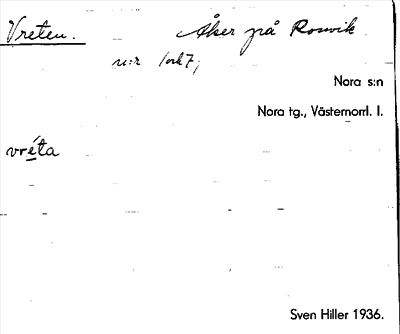 Vreten. Åker på Rosvik
n:r 1 och 7,
Nora s:n
Nora tg., Västernorrl. l.
vréta
Sven Hiller 1936.